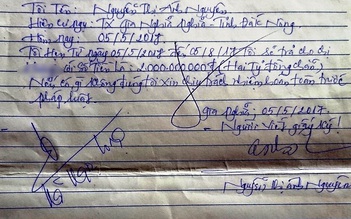 Tôi Tên: Nguyễn Thị Ánh Nguyên
Hiện cư ngụ: TX Gia Nghĩa - Tỉnh Đăk Nông
Hôm nay: 05/5/2017
Tôi Hẹn Từ ngày 05/5/2017 đến 05/8/17 Tôi sẽ trả cho chị
Số tiền là: 2.000.000.000đ (Hai tỷ đồng chẵn)
Nếu có gì không đúng tôi xin chịu trách nhiệm hoàn toàn trước
pháp luật.
Gia Nghĩa, 05/5/2017
Người viết giấy
Nguyễn Thị Ánh Nguyên